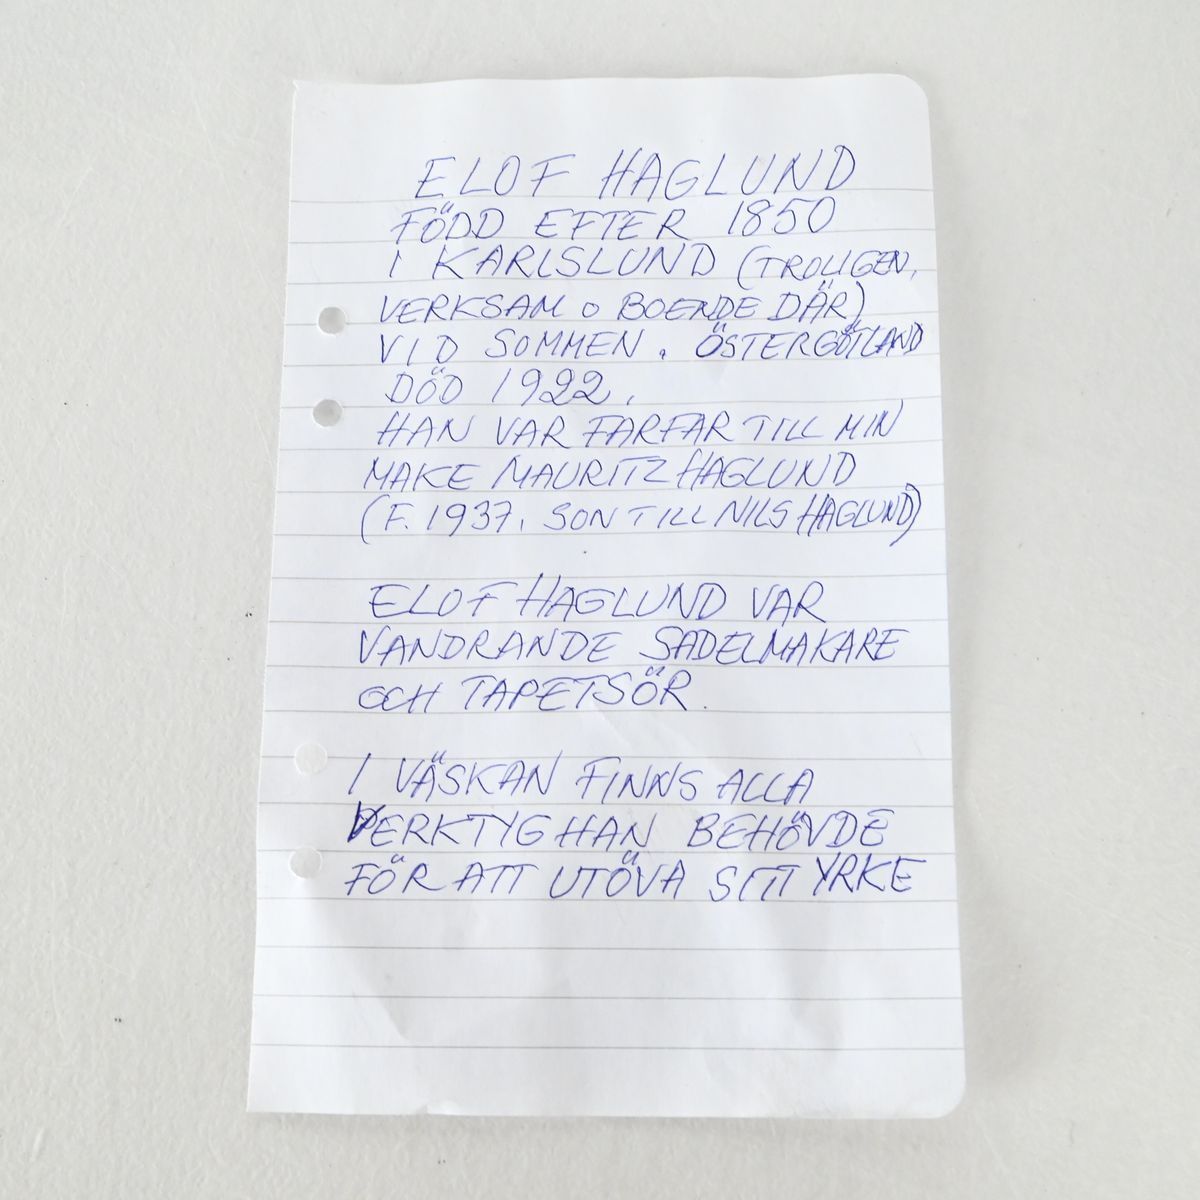 ELOF HAGLUND
FÖDD EFTER 1850
I KARLSLUND (TROLIGEN,
VERKSAM O BOENDE DÄR)
VID SOMMEN. ÖSTERGÖTLAND
DÖD 1922.
HAN VAR FARFAR TILL MIN
MAKE MAURITZ HAGLUND
(F. 1937, SON TILL NILS HAGLUND)
ELOF HAGLUND VAR
VANDRANDE SADELMAKARE
OCH TAPETSÖR.
I VÄSKAN FINNS ALLA
VERKTYG HAN BEHÖVDE
FÖR ATT UTÖVA SITT YRKE